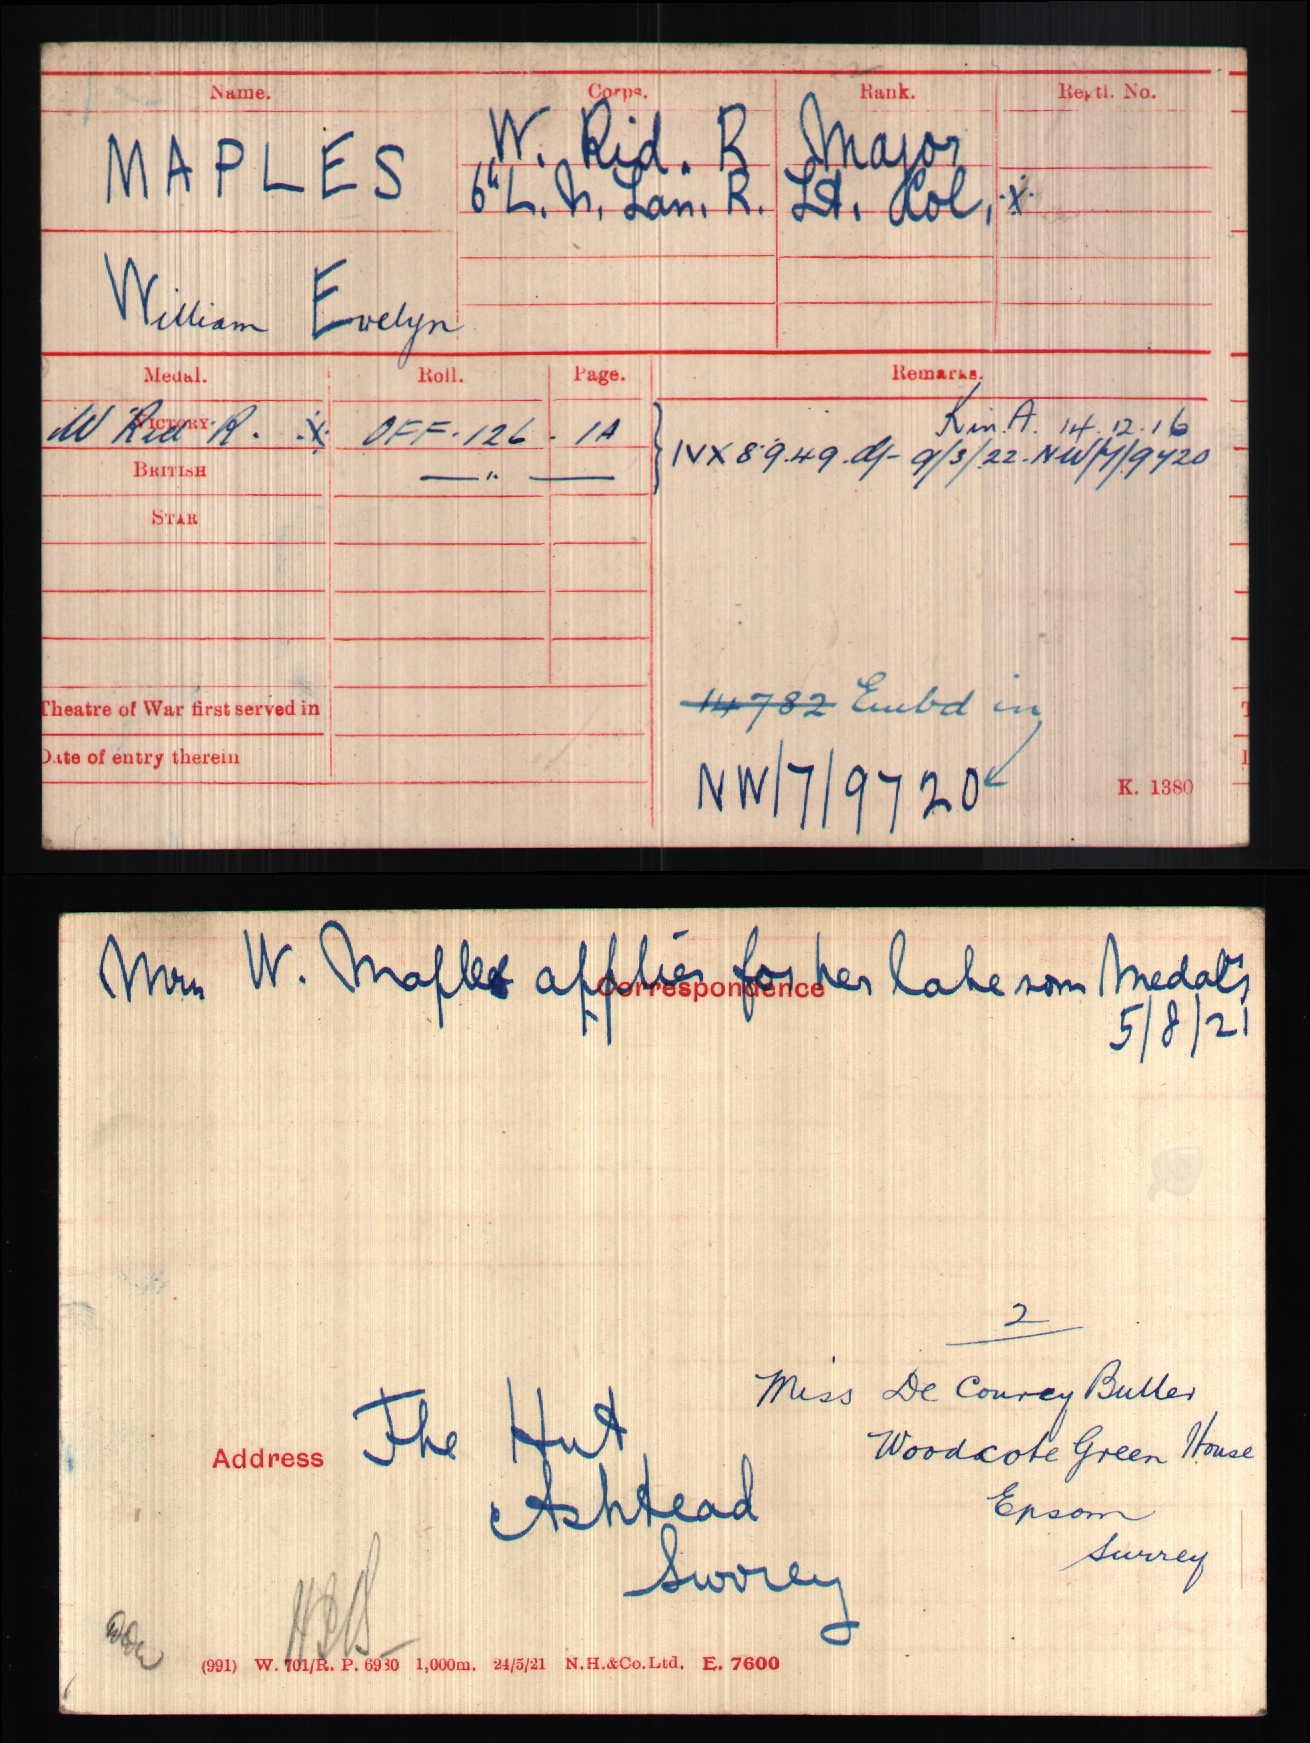 Name. Corps. Rank. Regtl. No.
MAPLES W. Rid. R Major
6" L. N. Lan. R. Lt. Col. X
William Evelyn
Medal. Roll. Page. Remarks.
VICTORY
W Rid R. X OFF. 126. 1A Kin A. 14.12.16
BRITISH — " — IVX 89.49. df- 9/3/22. NW/7/9720
STAR
14782 Embd in
Theatre of War first served in
NW/7/9720
Date of entry therein
K. 1380
Mrs W. Maples applies for her late son Medals
Correspondence
5/8/21
2
Miss De Courcy Butler
Woodcote Green House
Epsom
Surrey
Address The Hut
Ashtead
Surrey
(991) W. 701/R. P. 6930 1,000m. 24/5/21 N.H.&Co.Ltd. E. 7600